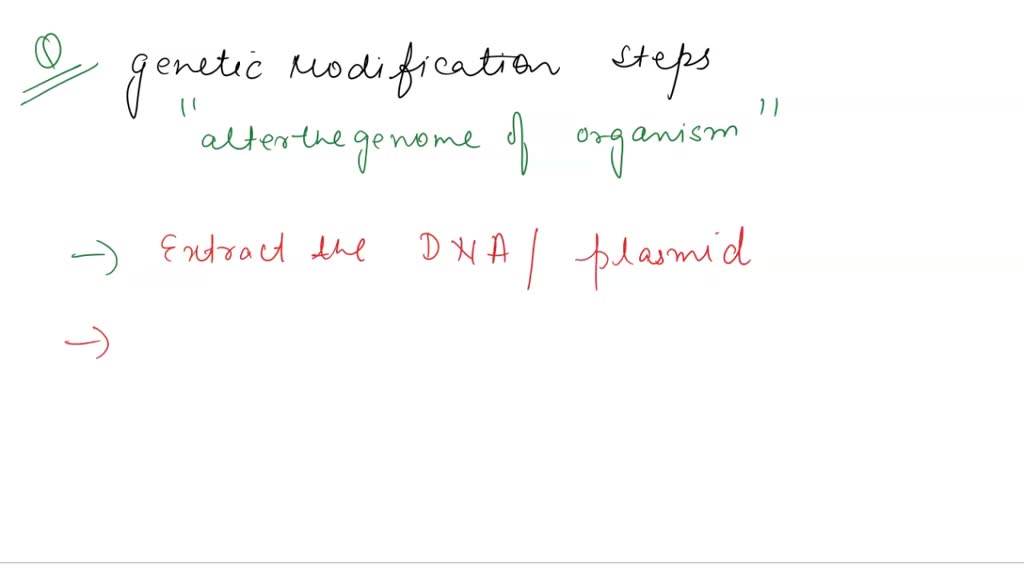 Q genetic Modification steps
"alter the genome of organism"
→ Extract the DNA / plasmid
→